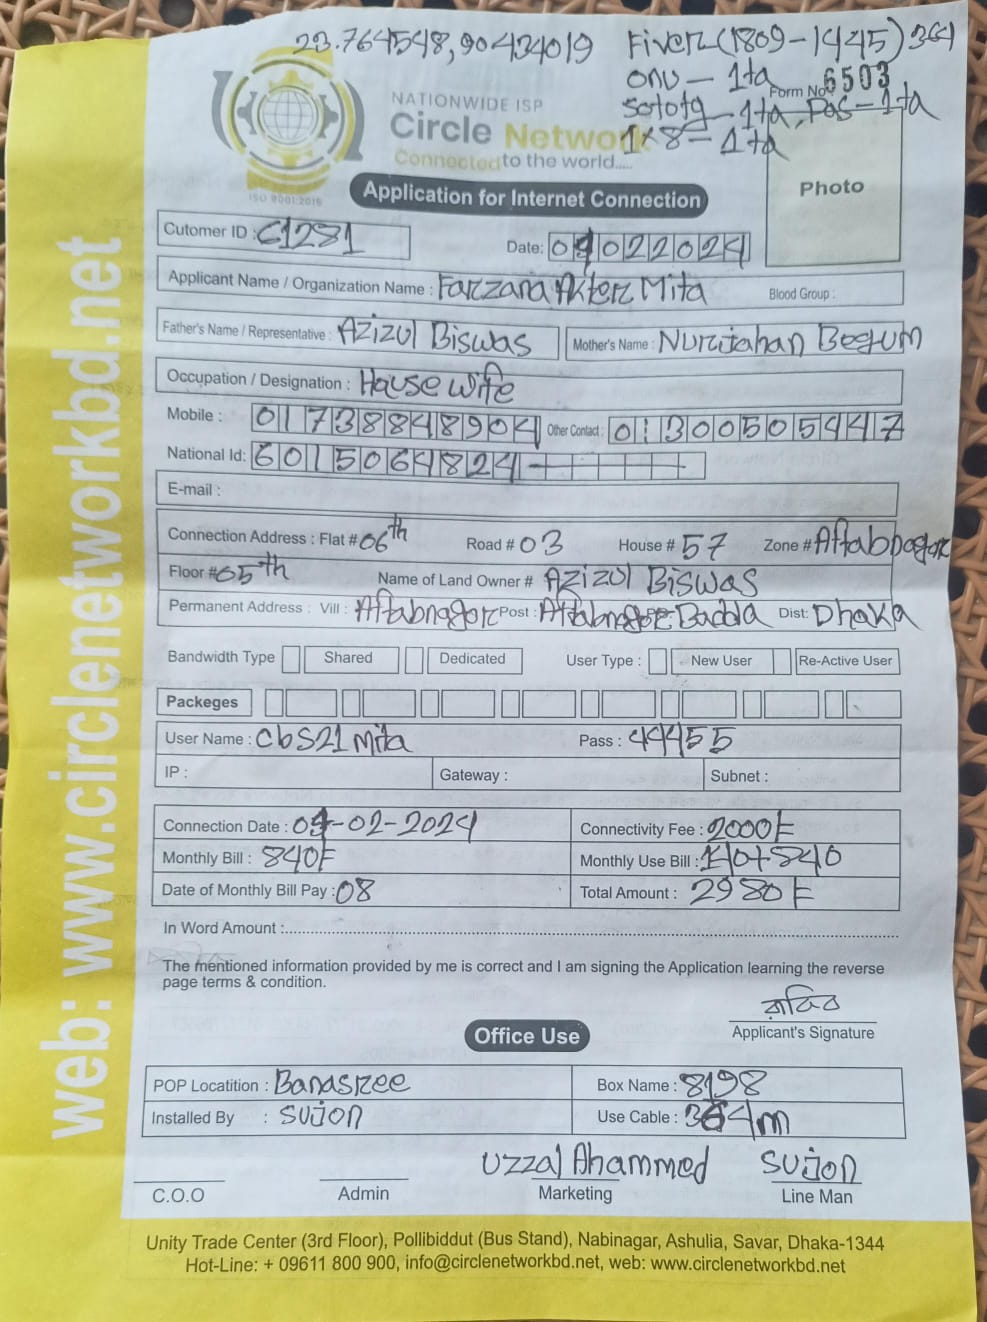 23.764548,90434019 Fiver(1809-1445)364
onu - 1ta
Form No 6503
NATIONWIDE ISP
Circle Network
1ta, Pos-1ta
1x8-1ta
Connected to the world.....
ISO 9001:2015
Application for Internet Connection
Photo
Cutomer ID : C1281
Date: 04022024
Applicant Name / Organization Name : Farzana Akter Mita Blood Group :
Father's Name / Representative : Azizul Biswas Mother's Name : Nurjahan Begum
Occupation / Designation : House wife
Mobile : 01738848904 Other Contact : 01300505447
National Id: 6015064824
E-mail :
Connection Address : Flat # 06th Road # 03 House # 57 Zone # Aftabnagor
Floor # 05th Name of Land Owner # Azizul Biswas
Permanent Address : Vill : Aftabnagor Post : Aftabnagor Badda Dist: Dhaka
Bandwidth Type Shared Dedicated User Type : New User Re-Active User
Packeges
User Name : Cbs21mita Pass : 44455
IP : Gateway : Subnet :
Connection Date : 04-02-2024 Connectivity Fee : 2000/-
Monthly Bill : 840/- Monthly Use Bill : 140+840
Date of Monthly Bill Pay : 08 Total Amount : 2980/-
In Word Amount :
The mentioned information provided by me is correct and I am signing the Application learning the reverse
page terms & condition.
Applicant's Signature
Office Use
POP Locatition : Banasree Box Name : 8198
Installed By : Sujon Use Cable : 364m
Uzzal Ahammed Sujon
C.O.O Admin Marketing Line Man
Unity Trade Center (3rd Floor), Pollibiddut (Bus Stand), Nabinagar, Ashulia, Savar, Dhaka-1344
Hot-Line: + 09611 800 900, info@circlenetworkbd.net, web: www.circlenetworkbd.net
web: www.circlenetworkbd.net